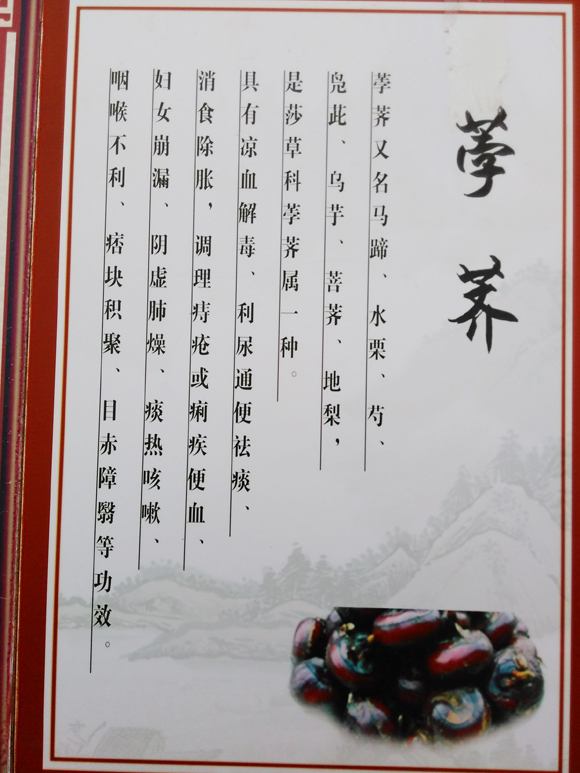 荸荠
荸荠又名马蹄、水栗、芍、
凫茈、乌芋、菩荠、地梨，
是莎草科荸荠属一种。
具有凉血解毒、利尿通便祛痰、
消食除胀，调理痔疮或痢疾便血、
妇女崩漏、阴虚肺燥、痰热咳嗽、
咽喉不利、痞块积聚、目赤障翳等功效。